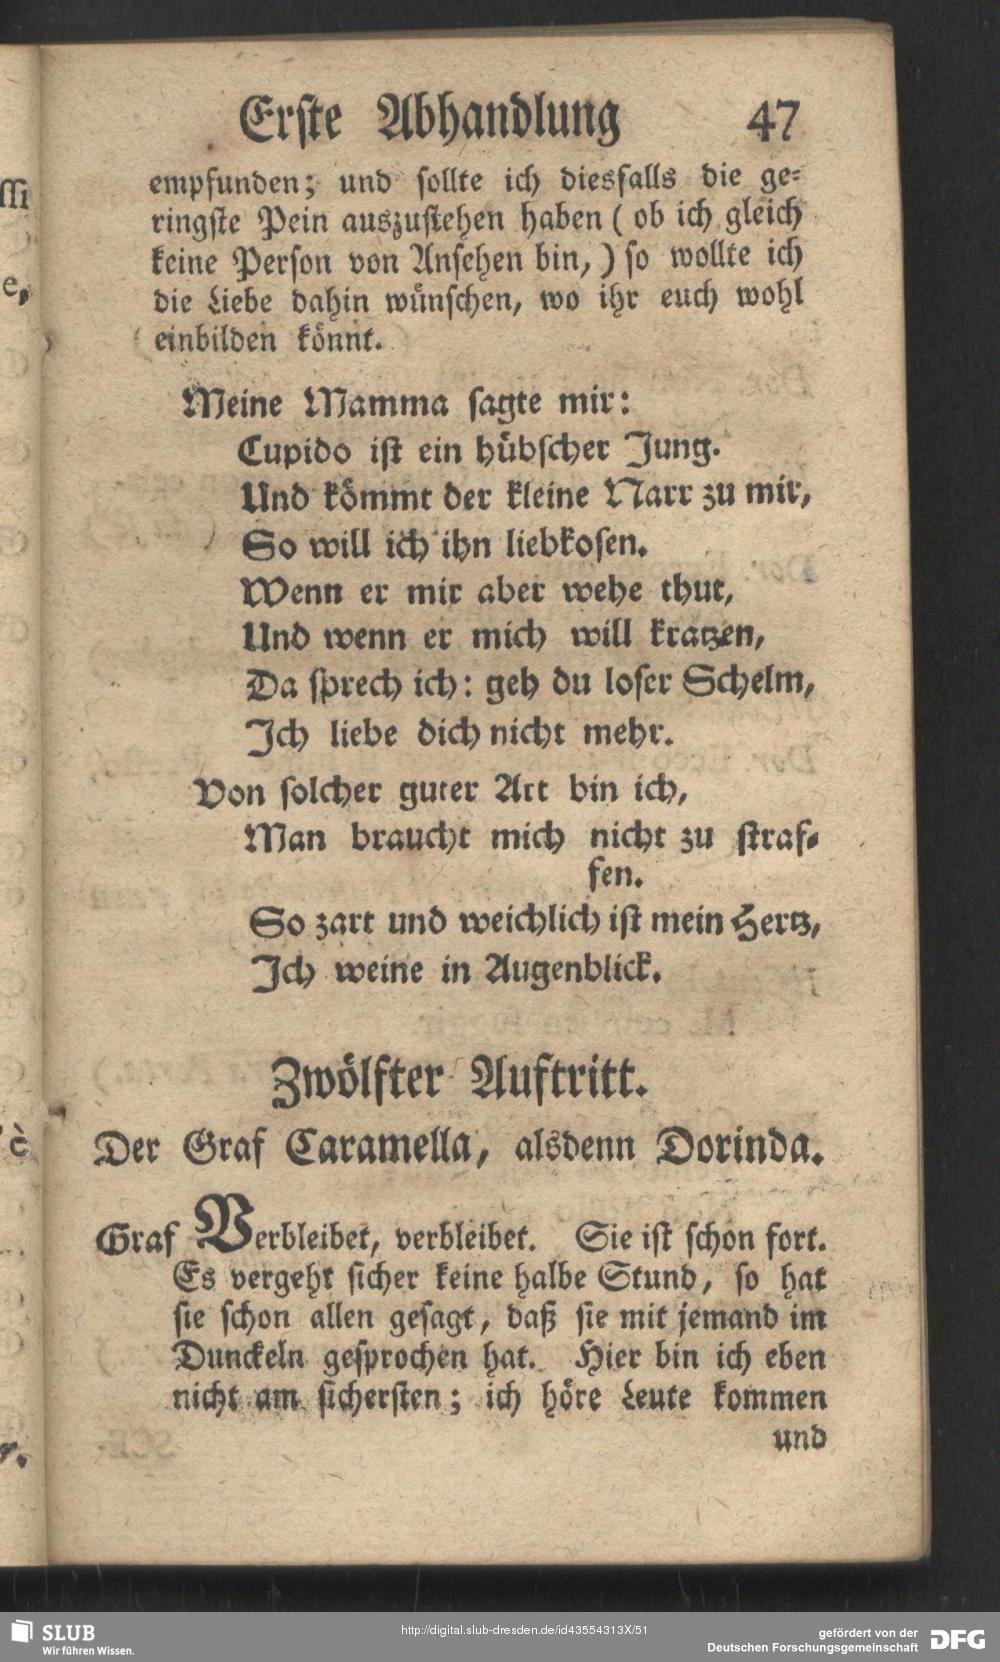 Erste Abhandlung 47
empfunden; und sollte ich diesfalls die ge-
ringste Pein auszustehen haben ( ob ich gleich
keine Person von Ansehen bin, ) so wollte ich
die Liebe dahin wünschen, wo ihr euch wohl
einbilden könnt.
Meine Mamma sagte mir:
Cupido ist ein hübscher Jung.
Und kömmt der kleine Narr zu mir,
So will ich ihn liebkosen.
Wenn er mir aber wehe thut,
Und wenn er mich will kratzen,
Da sprech ich: geh du loser Schelm,
Ich liebe dich nicht mehr.
Von solcher guter Art bin ich,
Man braucht mich nicht zu straf-
fen.
So zart und weichlich ist mein Hertz,
Ich weine in Augenblick.
Zwölfter Auftritt.
Der Graf Caramella, alsdenn Dorinda.
Graf Verbleibet, verbleibet. Sie ist schon fort.
Es vergeht sicher keine halbe Stund, so hat
sie schon allen gesagt, daß sie mit jemand im
Dunckeln gesprochen hat. Hier bin ich eben
nicht am sichersten; ich höre Leute kommen
und
SLUB
Wir führen Wissen.
http://digital.slub-dresden.de/id43554313X/51
gefördert von der
Deutschen Forschungsgemeinschaft
DFG